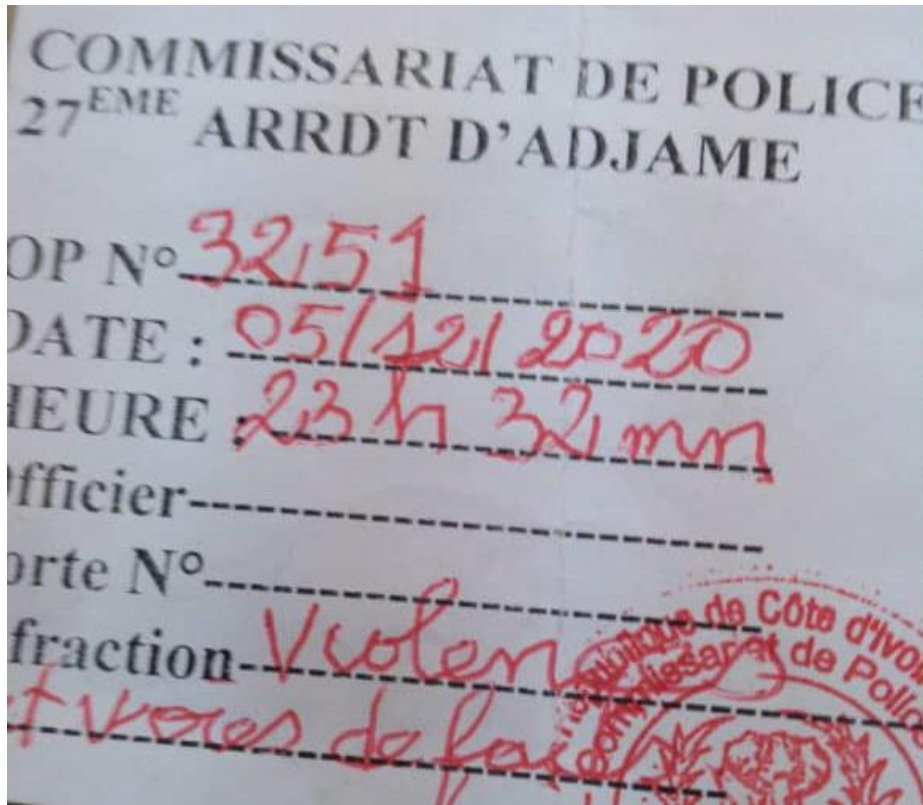 COMMISSARIAT DE POLICE
27EME ARRDT D'ADJAME
OP N° 32,51
DATE : 05/12/2020
HEURE : 23 h 32 mn
fficier
orte N°
fraction Violence
et voies de fait
de Côte d'Ivoi
Commissariat de Polic